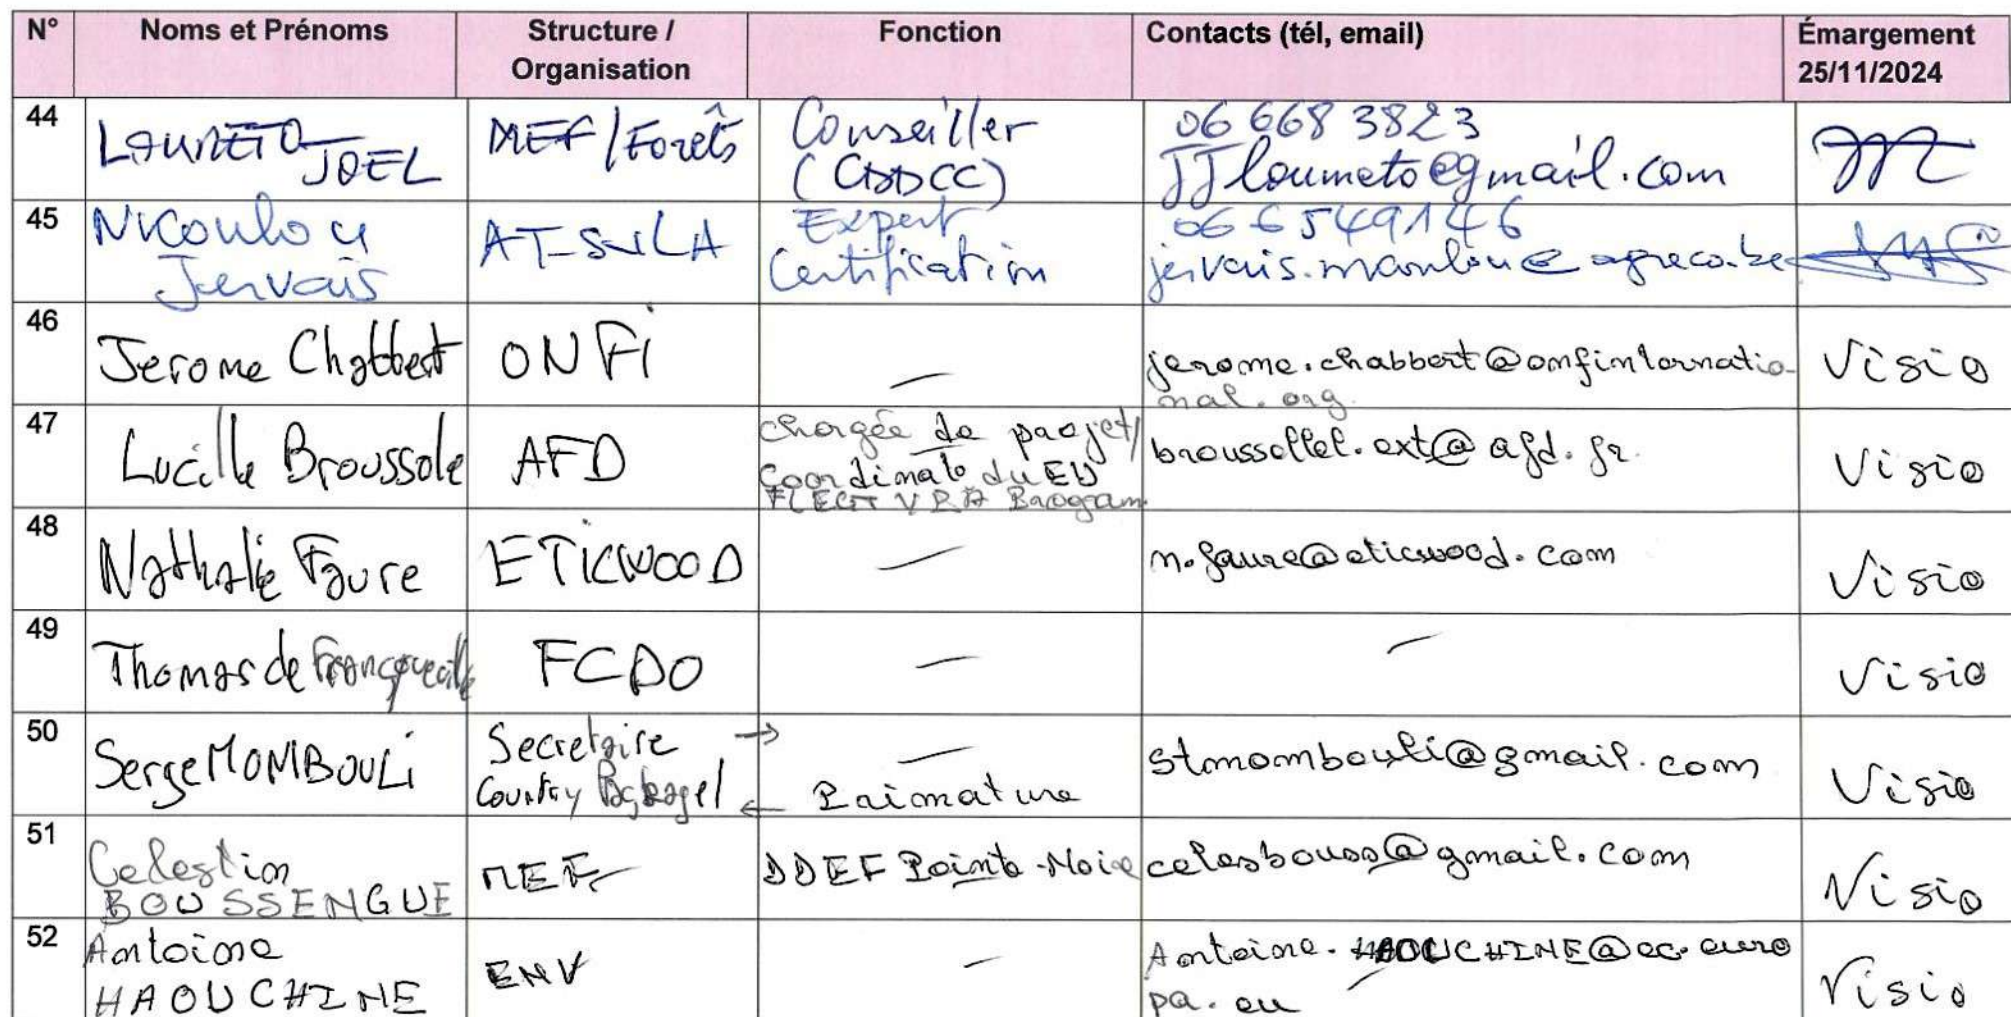 N° Noms et Prénoms Structure / Organisation Fonction Contacts (tél, email) Émargement 25/11/2024
44 JOEL MEF/Forêts Conseiller (CDDCC) 06 668 3823 JJloumeto@gmail.com
45 Jervais AT-SVLA Expert Certification 06 6549146 jervais.moulou@agreco.be
46 Jerome Chabbert ONFi — jerome.chabbert@onfinternatio-nal.org Visio
47 Lucille Broussole AFD Chargée de projet/ Coordinato du EU FLEGT VPA Program broussollel.ext@afd.fr. Visio
48 Nathalie Faure ETICWOOD — n.faure@eticwood.com Visio
49 Thomas de Francqueville FCDO — — Visio
50 Serge MOMBOULi Secretaire → Country Package ← — Primature stmombouli@gmail.com Visio
51 Celestin BOUSSENGUE MEF DDEF Pointe-Noire celesbouss@gmail.com Visio
52 Antoine HAOUCHINE ENV — Antoine.HAOUCHINE@ec.europa.eu Visio